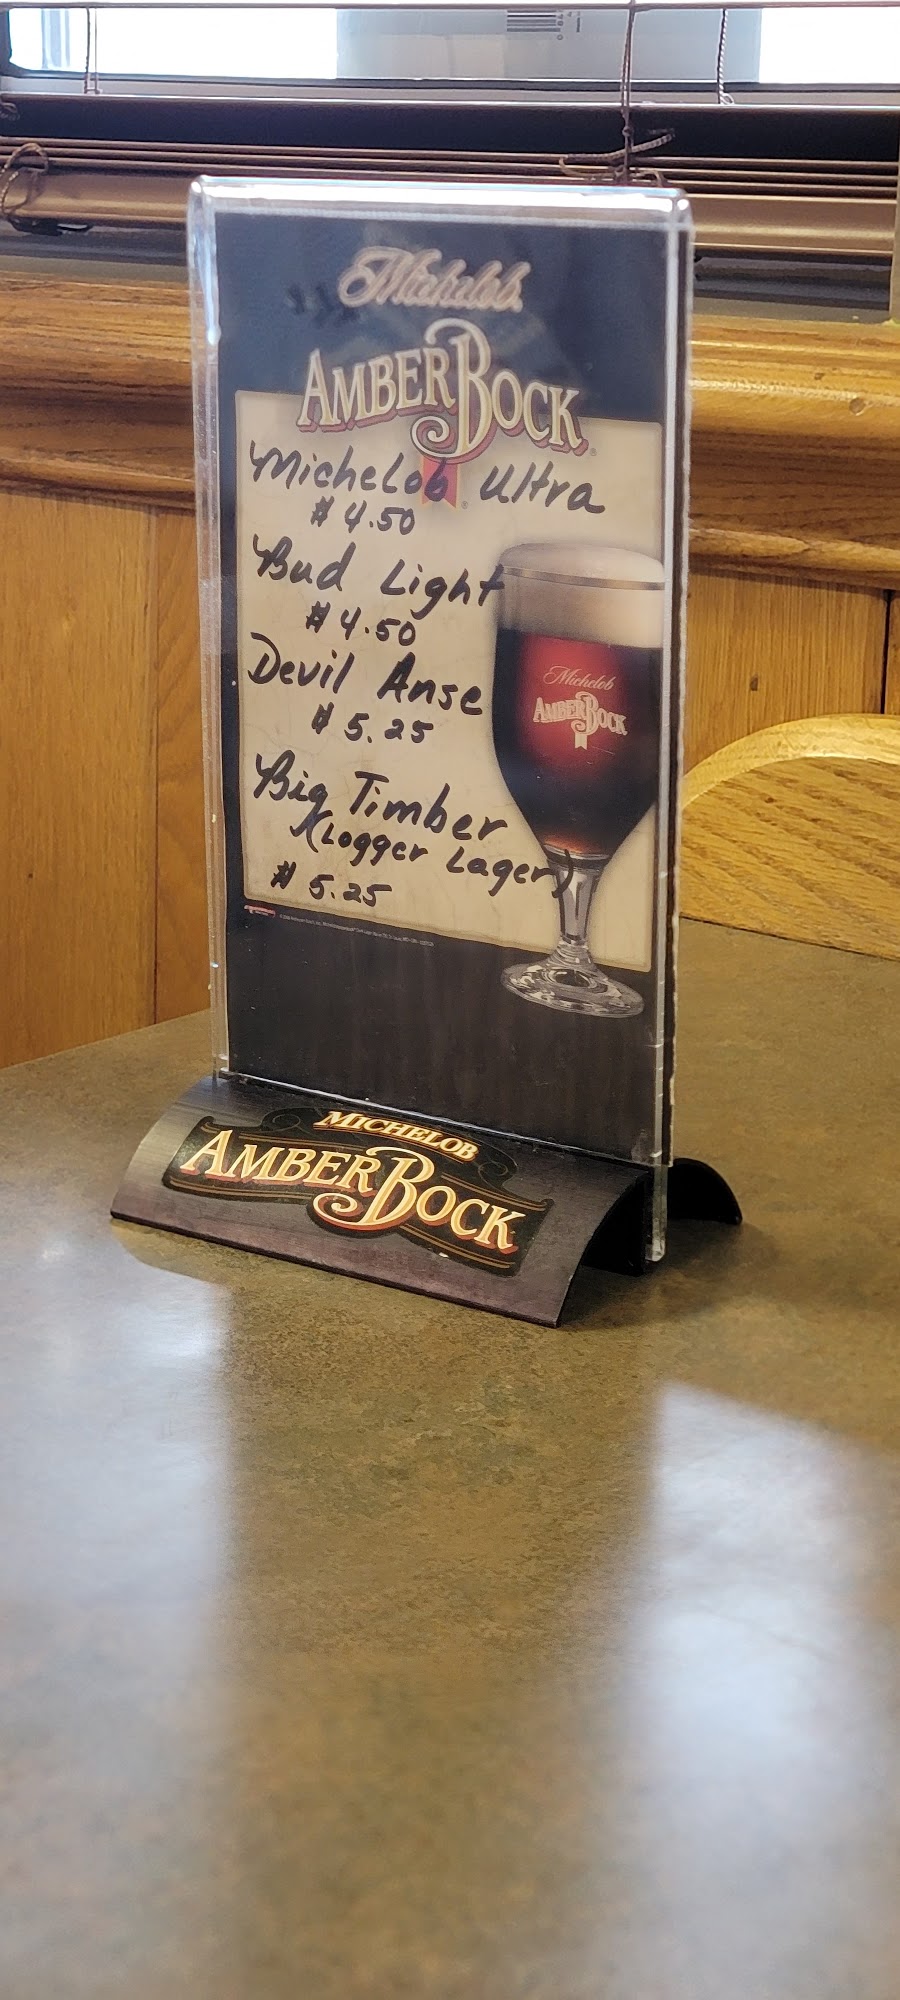 Michelob
AMBERBOCK
Michelob Ultra
$ 4.50
Bud Light
$ 4.50
Devil Anse
$ 5.25
Big Timber
(Logger Lager)
$ 5.25
Michelob
AMBERBOCK
MICHELOB
AMBERBOCK